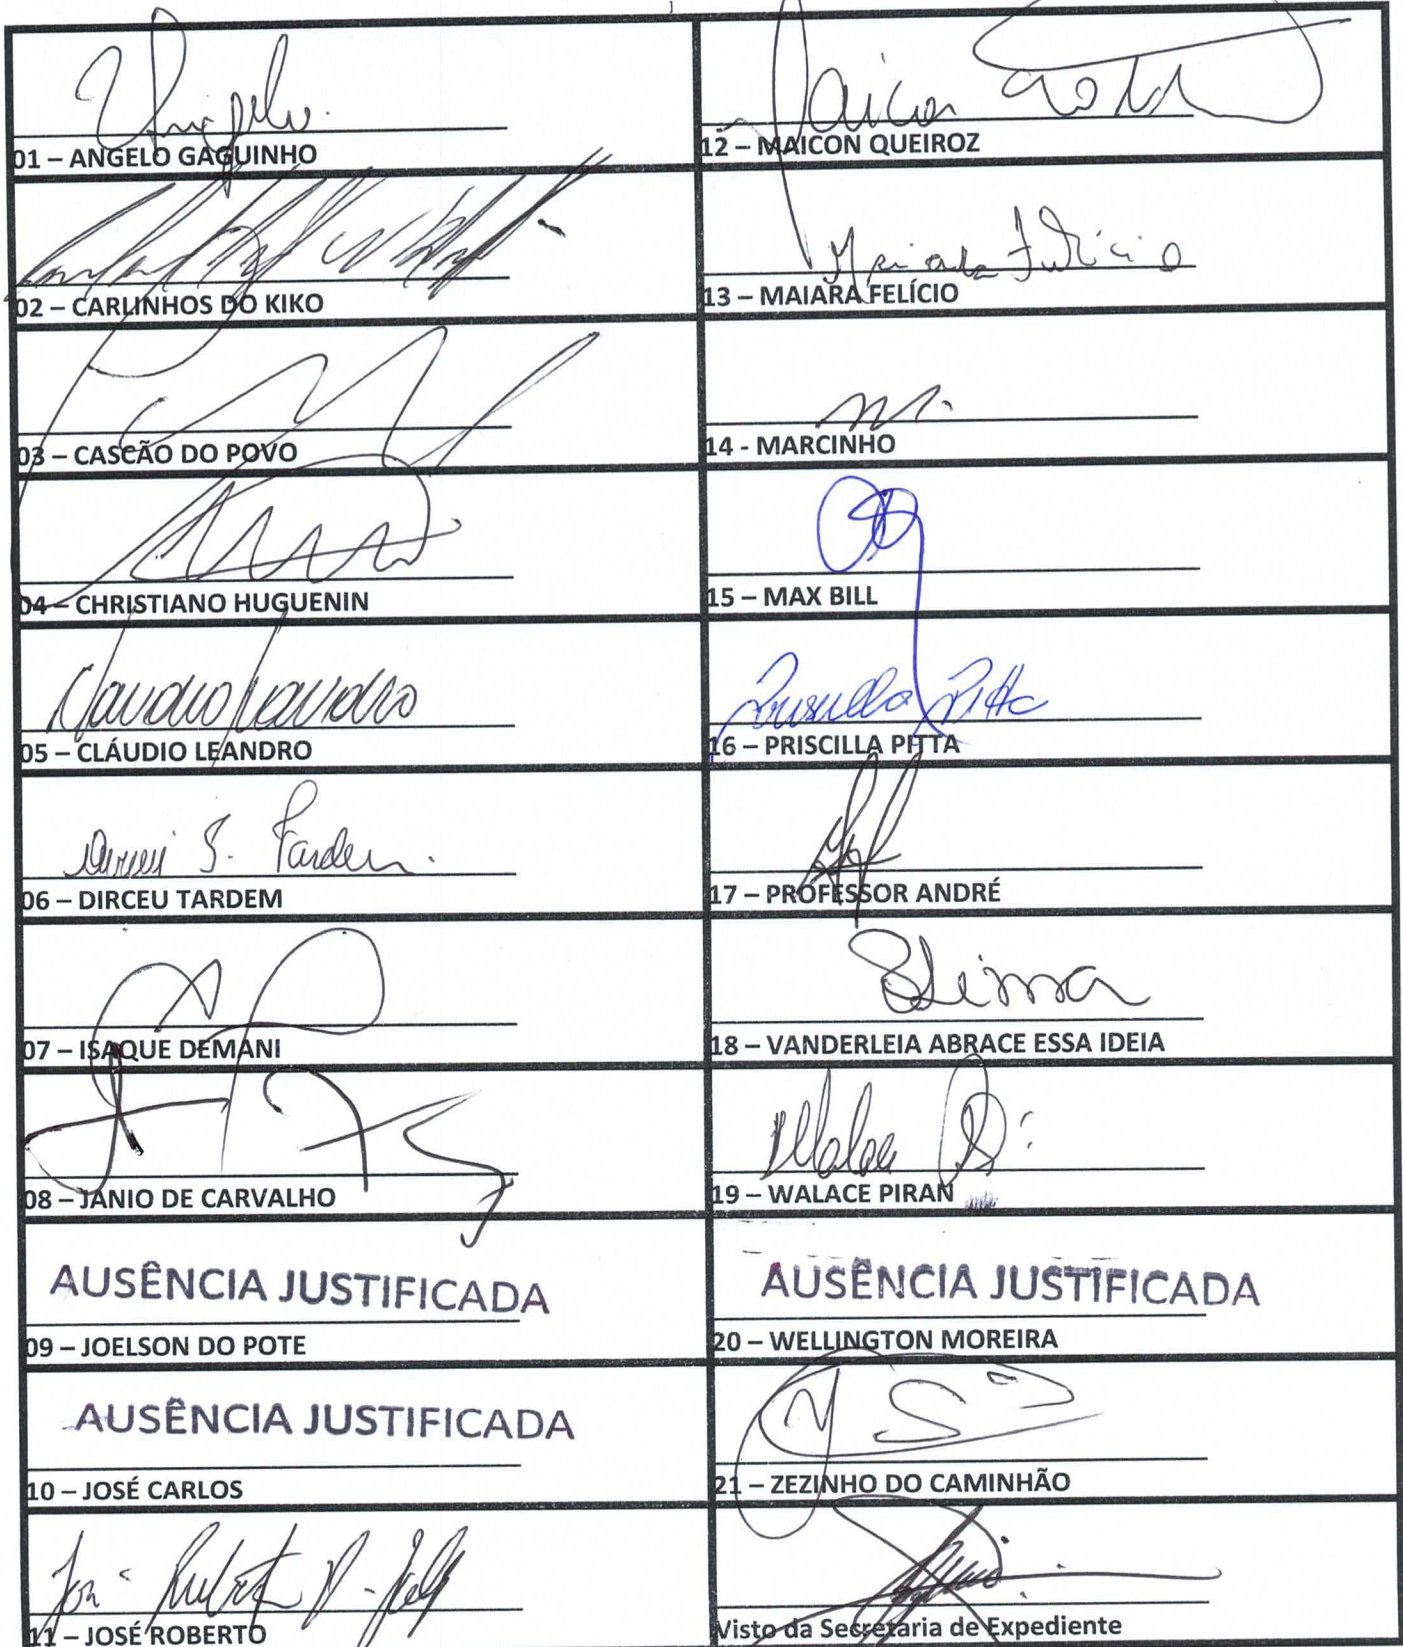 Angelo.
01 – ANGELO GAGUINHO
02 – CARLINHOS DO KIKO
03 – CASCÃO DO POVO
04 – CHRISTIANO HUGUENIN
Claudio Leandro
05 – CLÁUDIO LEANDRO
Dirceu S. Tardem.
06 – DIRCEU TARDEM
07 – ISAQUE DEMANI
08 – JANIO DE CARVALHO
AUSÊNCIA JUSTIFICADA
09 – JOELSON DO POTE
AUSÊNCIA JUSTIFICADA
10 – JOSÉ CARLOS
José Roberto
11 – JOSÉ ROBERTO
Maicon
12 – MAICON QUEIROZ
Maiara Felício
13 – MAIARA FELÍCIO
14 - MARCINHO
15 – MAX BILL
Priscilla Pitta
16 – PRISCILLA PITTA
17 – PROFESSOR ANDRÉ
18 – VANDERLEIA ABRACE ESSA IDEIA
Walace
19 – WALACE PIRAN
AUSÊNCIA JUSTIFICADA
20 – WELLINGTON MOREIRA
21 – ZEZINHO DO CAMINHÃO
Visto da Secretaria de Expediente